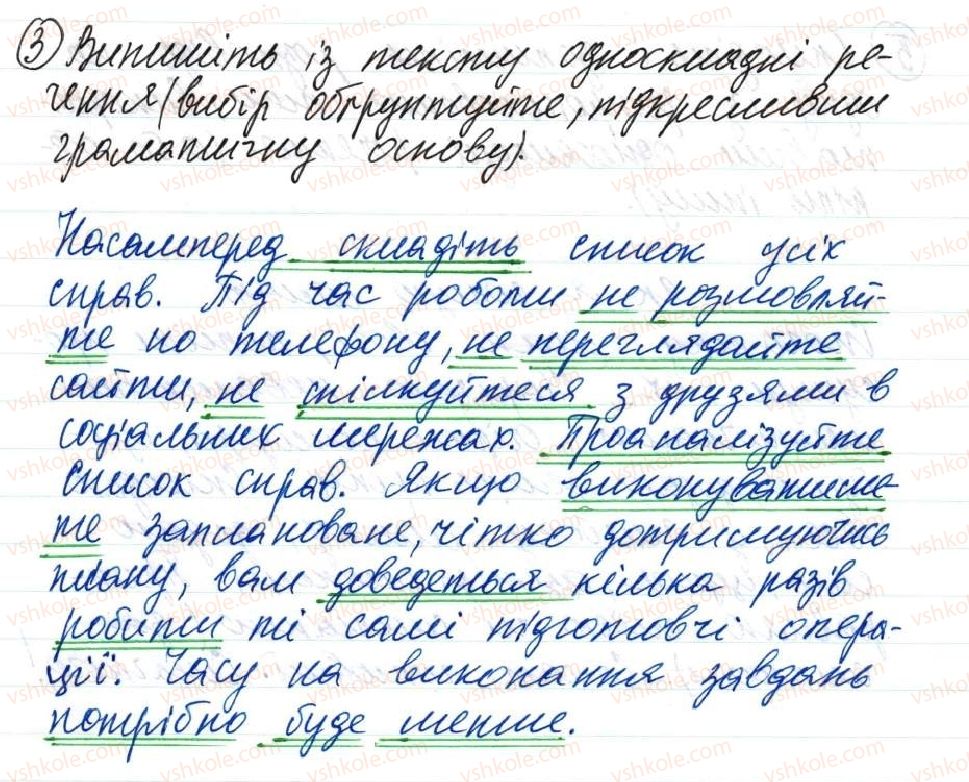 ③ Випишіть із тексту односкладні ре-
чення (вибір обґрунтуйте, підкресливши
граматичну основу).
Насамперед складіть список усіх
справ. Під час роботи не розмовляй-
те по телефону, не переглядайте
сайти, не спілкуйтеся з друзями в
соціальних мережах. Проаналізуйте
список справ. Якщо виконуватиме-
те заплановане, чітко дотримуючись
плану, вам доведеться кілька разів
робити ті самі підготовчі опера-
ції. Часу на виконання завдань
потрібно буде менше.